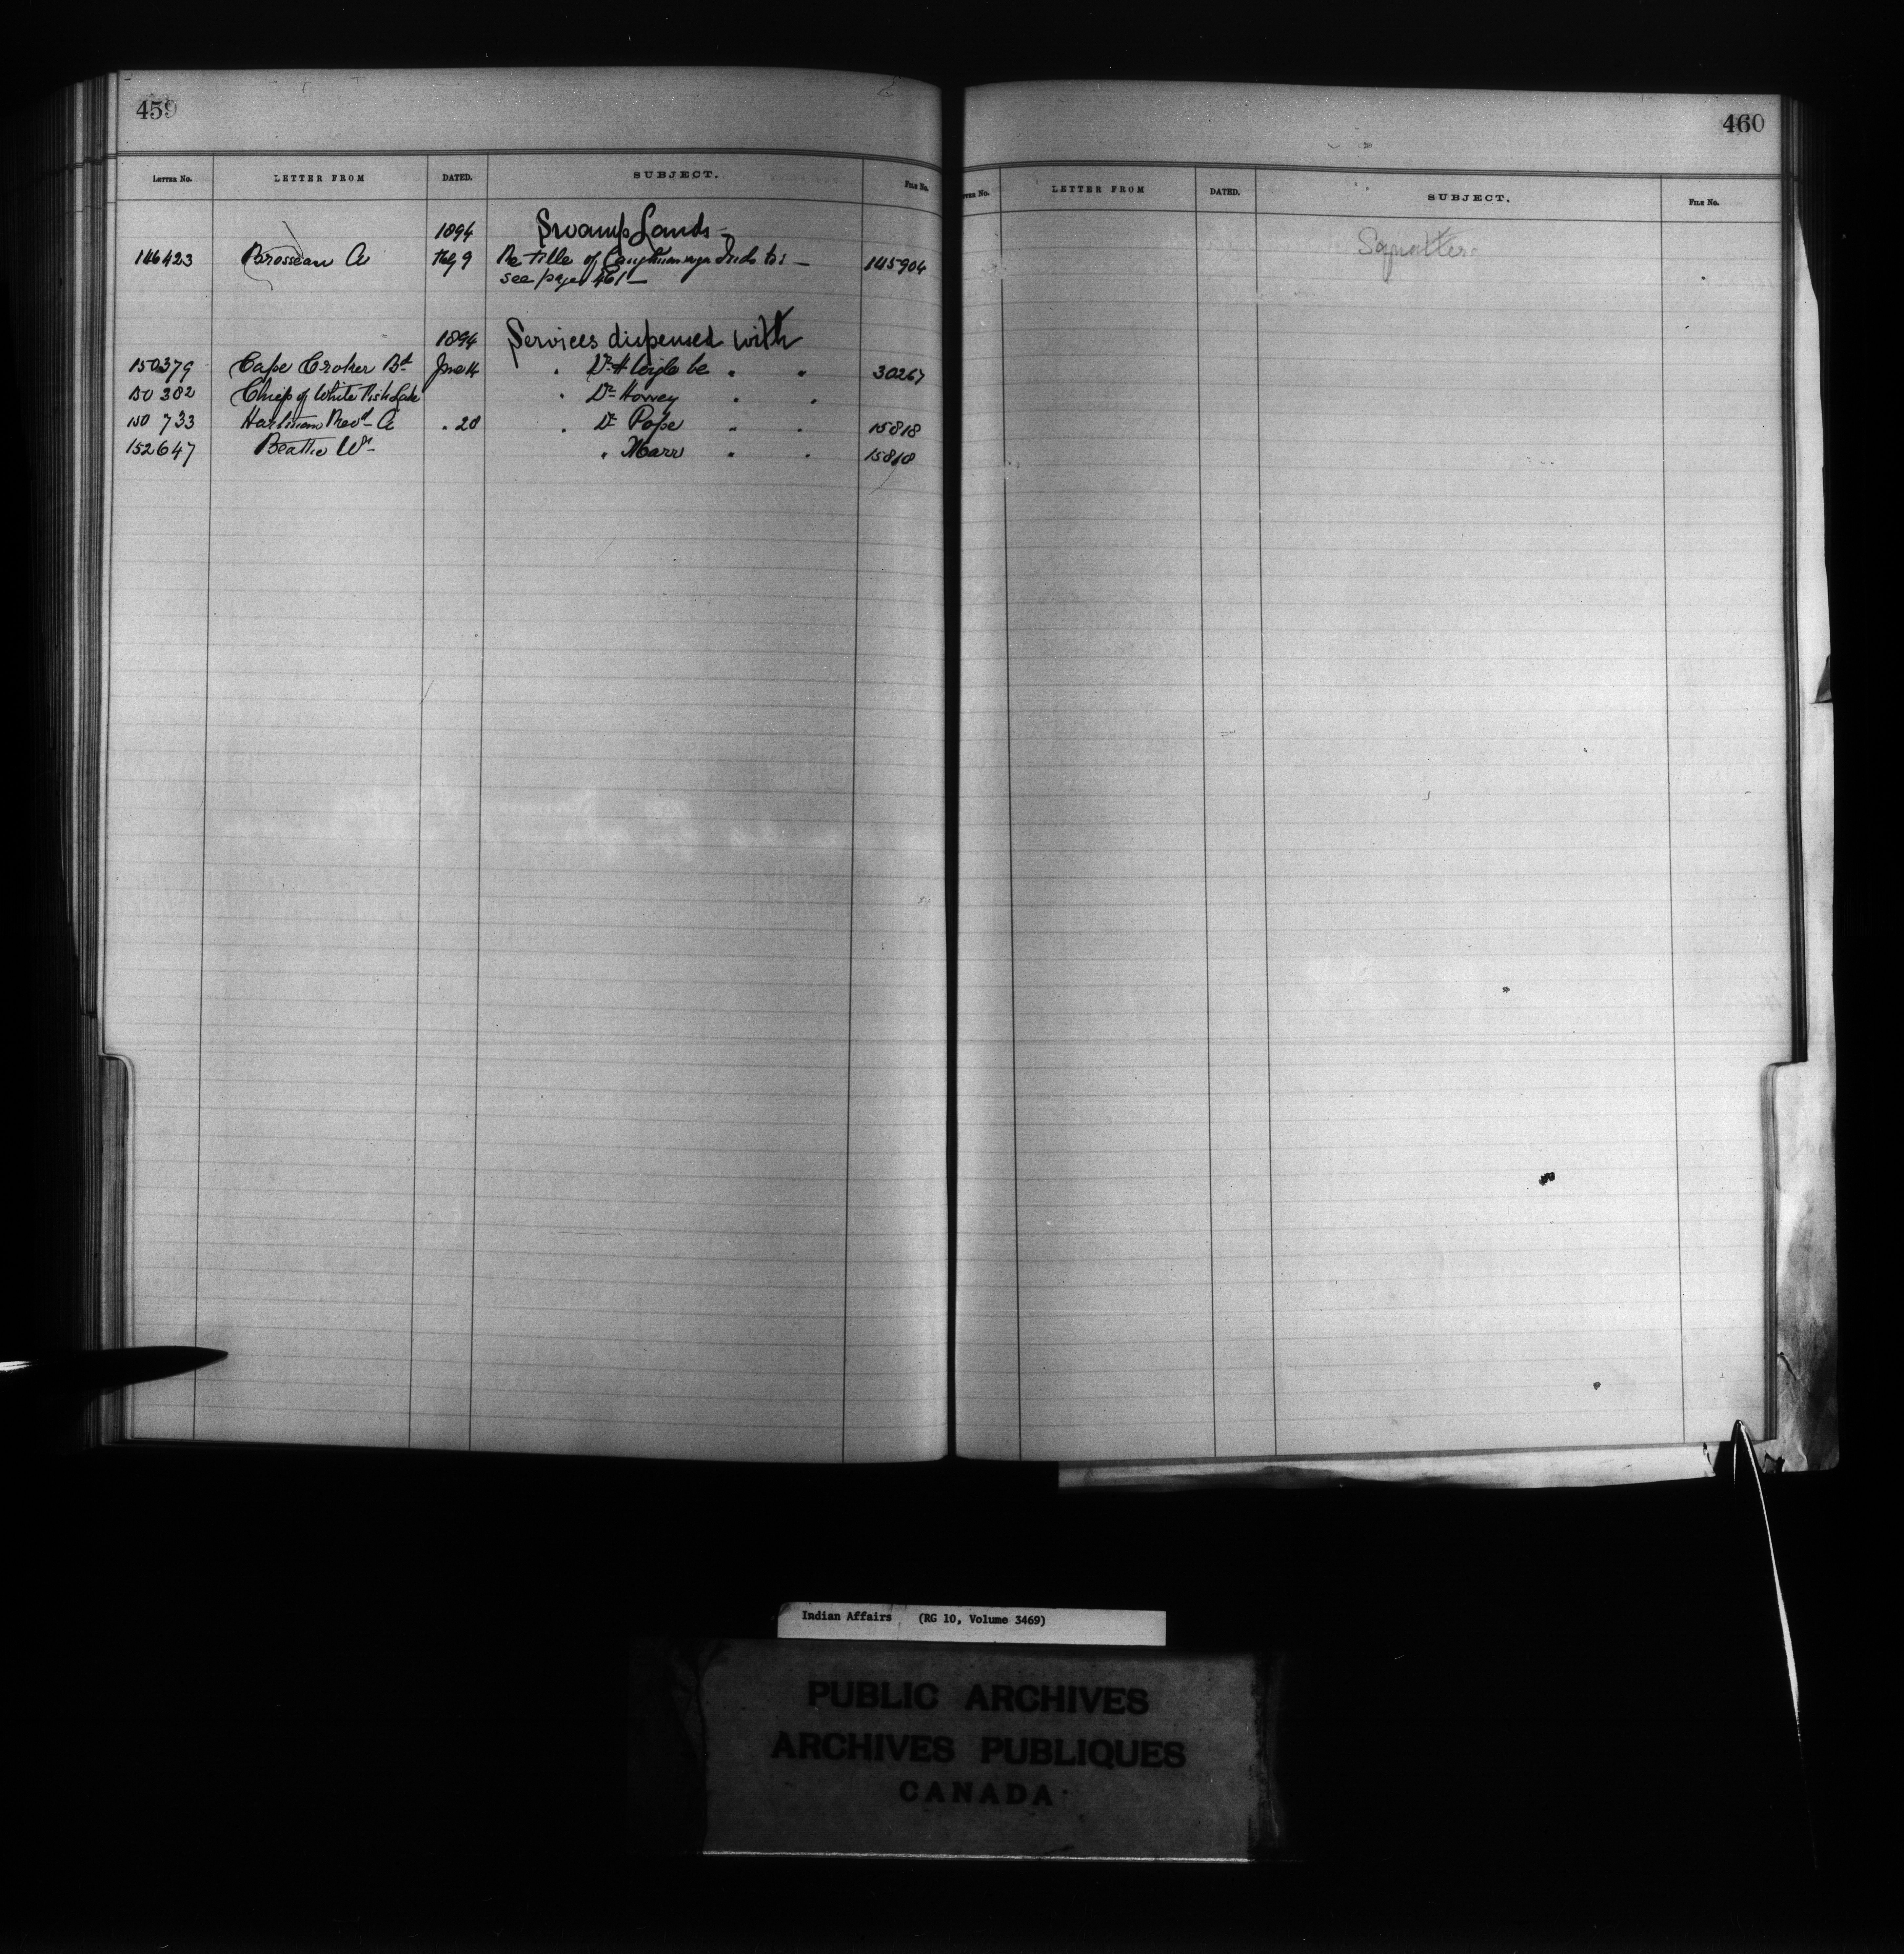 459
LETTER No. LETTER FROM DATED. SUBJECT. FILE No.
1894 Swamp Lands -
146423 Brosseau A Feby 9 Re title of Caughnawaga Inds to : - 145904
see page 461 -
1894 Services dispensed with
150379 Cape Croker Bd June 14 " Dr H " " 30267
150382 Chief of White Fish Lake " Dr Howey " "
150733 Hartman Revd A " 20 " Dr Pope " " 15818
152647 Beattie Wm " Marr " " 15818
460
LETTER No. LETTER FROM DATED. SUBJECT. FILE No.
Squatters
Indian Affairs (RG 10, Volume 3469)
PUBLIC ARCHIVES
ARCHIVES PUBLIQUES
CANADA